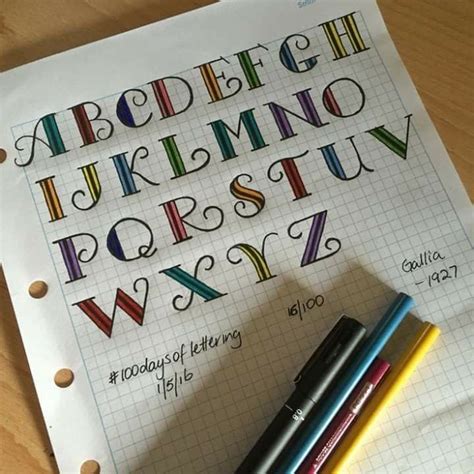 ABCDEFGH
IJKLMNO
PQRSTUV
WXYZ
Gallia
-1927
16/100
#100daysoflettering
1/5/16
0.8